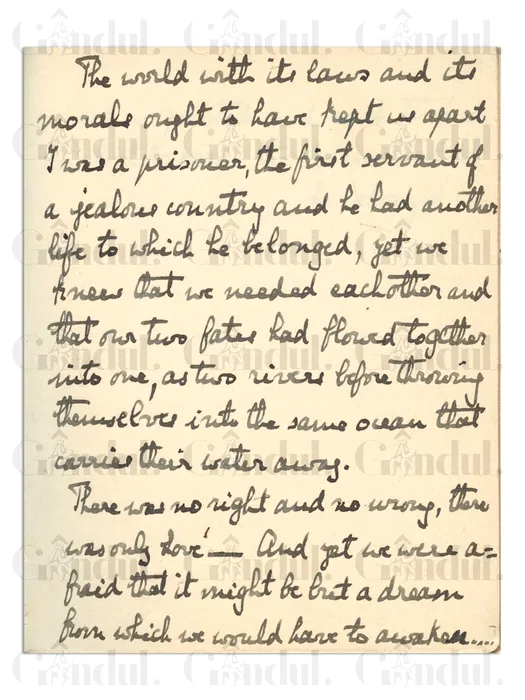 The world with its laws and its
morals ought to have kept us apart
I was a prisoner, the first servant of
a jealous country and he had another
life to which he belonged, yet we
knew that we needed eachother and
that our two fates had flowed together
into one, as two rivers before throwing
themselves into the same ocean that
carries their water away.
There was no right and no wrong, there
was only Love — And yet we were a=
fraid that it might be but a dream
from which we would have to awaken....
Gândul.